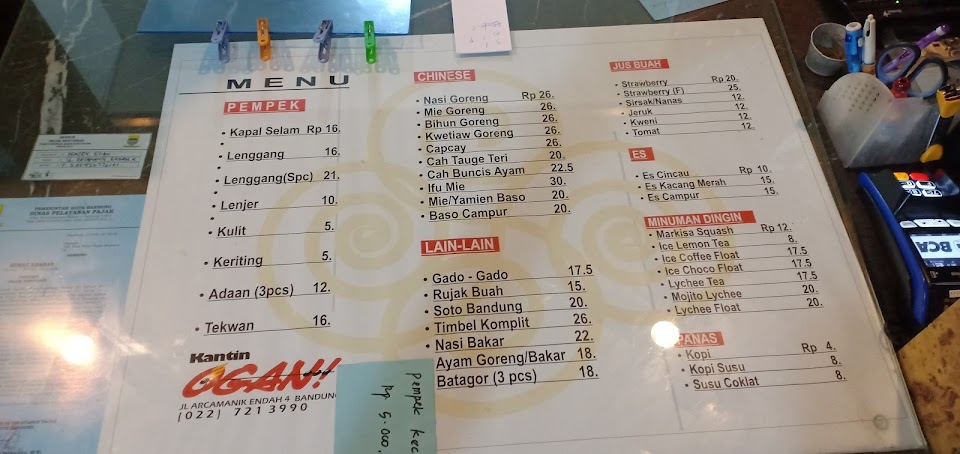 MENU
PEMPEK
• Kapal Selam Rp 16.
• Lenggang 16.
• Lenggang(Spc) 21.
• Lenjer 10.
• Kulit 5.
• Keriting 5.
• Adaan (3pcs) 12.
• Tekwan 16.
Kantin
OGAN!
JL ARCAMANIK ENDAH 4 BANDUNG
(022) 721 3990
CHINESE
• Nasi Goreng Rp 26.
• Mie Goreng 26.
• Bihun Goreng 26.
• Kwetiaw Goreng 26.
• Capcay 26.
• Cah Tauge Teri 20.
• Cah Buncis Ayam 22.5
• Ifu Mie 30.
• Mie/Yamien Baso 20.
• Baso Campur 20.
LAIN-LAIN
• Gado - Gado 17.5
• Rujak Buah 15.
• Soto Bandung 20.
• Timbel Komplit 26.
• Nasi Bakar 22.
Ayam Goreng/Bakar 18.
Batagor (3 pcs) 18.
Pempek kec
Rp 5.000,
JUS BUAH
• Strawberry Rp 20.
• Strawberry (F) 25.
• Sirsak/Nanas 12.
• Jeruk 12.
• Kweni 12.
• Tomat 12.
ES
• Es Cincau Rp 10.
• Es Kacang Merah 15.
• Es Campur 15.
MINUMAN DINGIN
• Markisa Squash Rp 12.
• Ice Lemon Tea 8.
• Ice Coffee Float 17.5
• Ice Choco Float 17.5
• Lychee Tea 17.5
• Mojito Lychee 20.
• Lychee Float 20.
PANAS
• Kopi Rp 4.
• Kopi Susu 8.
• Susu Coklat 8.
PEMERINTAH KOTA BANDUNG
DINAS PELAYANAN PAJAK
BCA